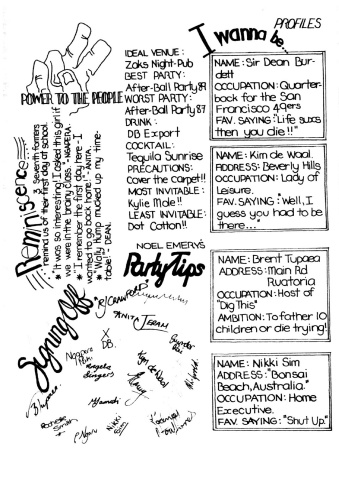 PROFILES
I wanna be...
POWER TO THE PEOPLE
Reminiscence
3 Seventh formers
remind us of their first day at school.
* "It was so interesting! I asked this girl if
we were in the brainy class." - NGAPERA.
* "I remember the first day here - I
wanted to go back home!" - ANITA.
* "Wally Hump mucked up my time-
table!" - DEAN.
IDEAL VENUE:
Zaks Night-Pub
BEST PARTY:
After-Ball Party 89
WORST PARTY:
After-Ball Party 87
DRINK:
DB Export
COCKTAIL:
Tequila Sunrise
PRECAUTIONS:
Cover the carpet!!
MOST INVITABLE:
Kylie Mole!!
LEAST INVITABLE:
Dot Cotton!!
NOEL EMERY'S
Party Tips
Signing Off
R/CRAWFORD
ANITA JEBAM
X
DB.
Angela
Kim de Waal
Rochelle
Smith
Nikki
Sim
NAME: Sir Dean Bur-
dett
OCCUPATION: Quarter-
book for the San
Francisco 49ers
FAV. SAYING: "Life sucks
then you die!!"
NAME: Kim de Waal.
ADDRESS: Beverly Hills
OCCUPATION: Lady of
Leisure.
FAV. SAYING: "Well, I
guess you had to be
there..."
NAME: Brent Tupaea
ADDRESS: Main Rd
Ruatoria
OCCUPATION: Host of
"Dig This"
AMBITION: To father 10
children or die trying!
NAME: Nikki Sim
ADDRESS: "Bonsai
Beach, Australia."
OCCUPATION: Home
Executive.
FAV. SAYING: "Shut Up."